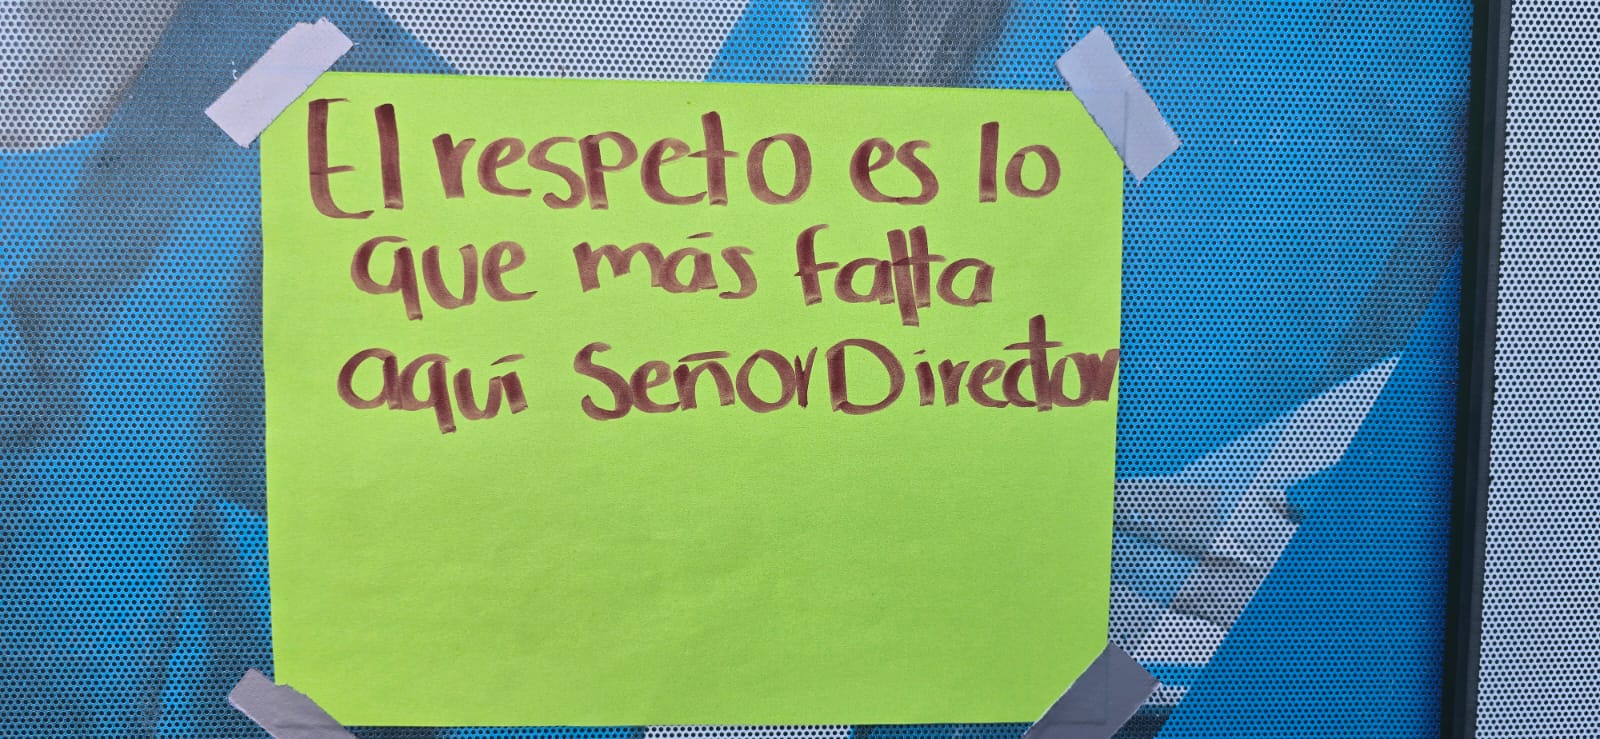 El respeto es lo
que más falta
aquí Señor Director